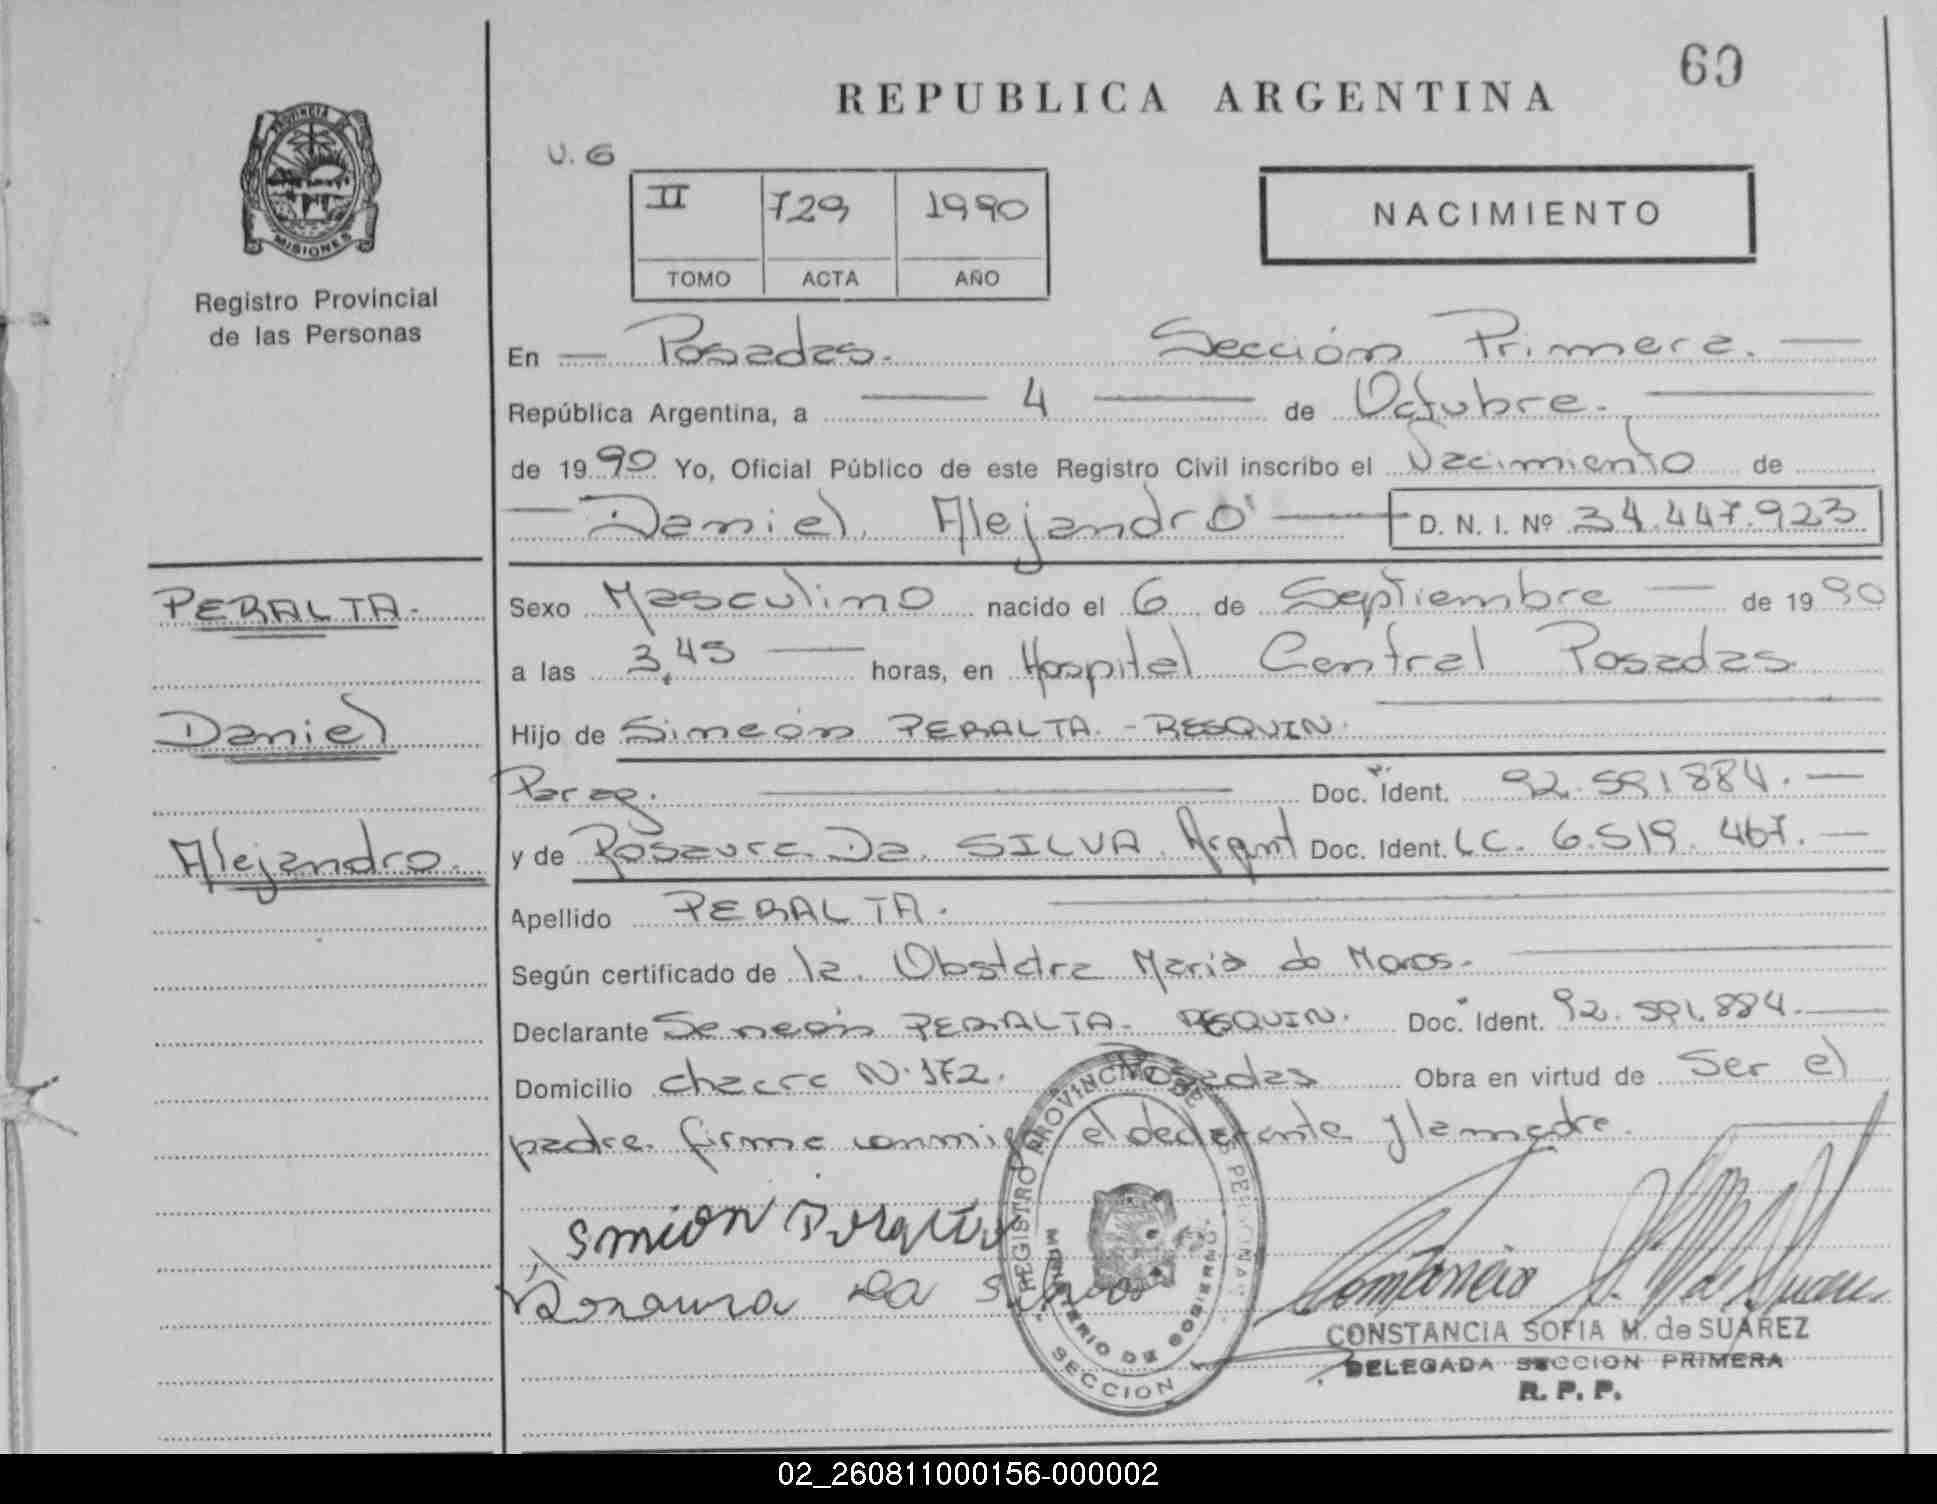 60
REPUBLICA ARGENTINA
PROVINCIA DE
MISIONES
Registro Provincial
de las Personas
U. G
II 729 1990
TOMO ACTA AÑO
NACIMIENTO
En Posadas. Sección Primera.
República Argentina, a 4 de Octubre.
de 1990 Yo, Oficial Público de este Registro Civil inscribo el Nacimiento de
Daniel, Alejandro D. N. I. Nº 34.447.923
PERALTA.
Daniel
Alejandro.
Sexo Masculino nacido el 6 de Septiembre de 1990
a las 3,45 horas, en Hospital Central Posadas
Hijo de Simeón PERALTA.-RESQUIN.
Parag. Doc. Ident. 92.591884.
y de Rosaura Da. SILVA. Argent Doc. Ident. LC. 6.519.467.
Apellido PERALTA.
Según certificado de la Obstetra Maria de
Declarante PERALTA. RESQUIN. Doc. Ident. 92.591.884.
Domicilio chacra N.172. Posadas Obra en virtud de Ser el
padre. firma conmigo el declarante y la madre.
Rosaura Da Silva
REGISTRO PROVINCIAL DE LAS PERSONAS
MINISTERIO DE GOBIERNO
SECCION
CONSTANCIA SOFIA M. de SUAREZ
DELEGADA SECCION PRIMERA
R. P. P.
02_260811000156-000002